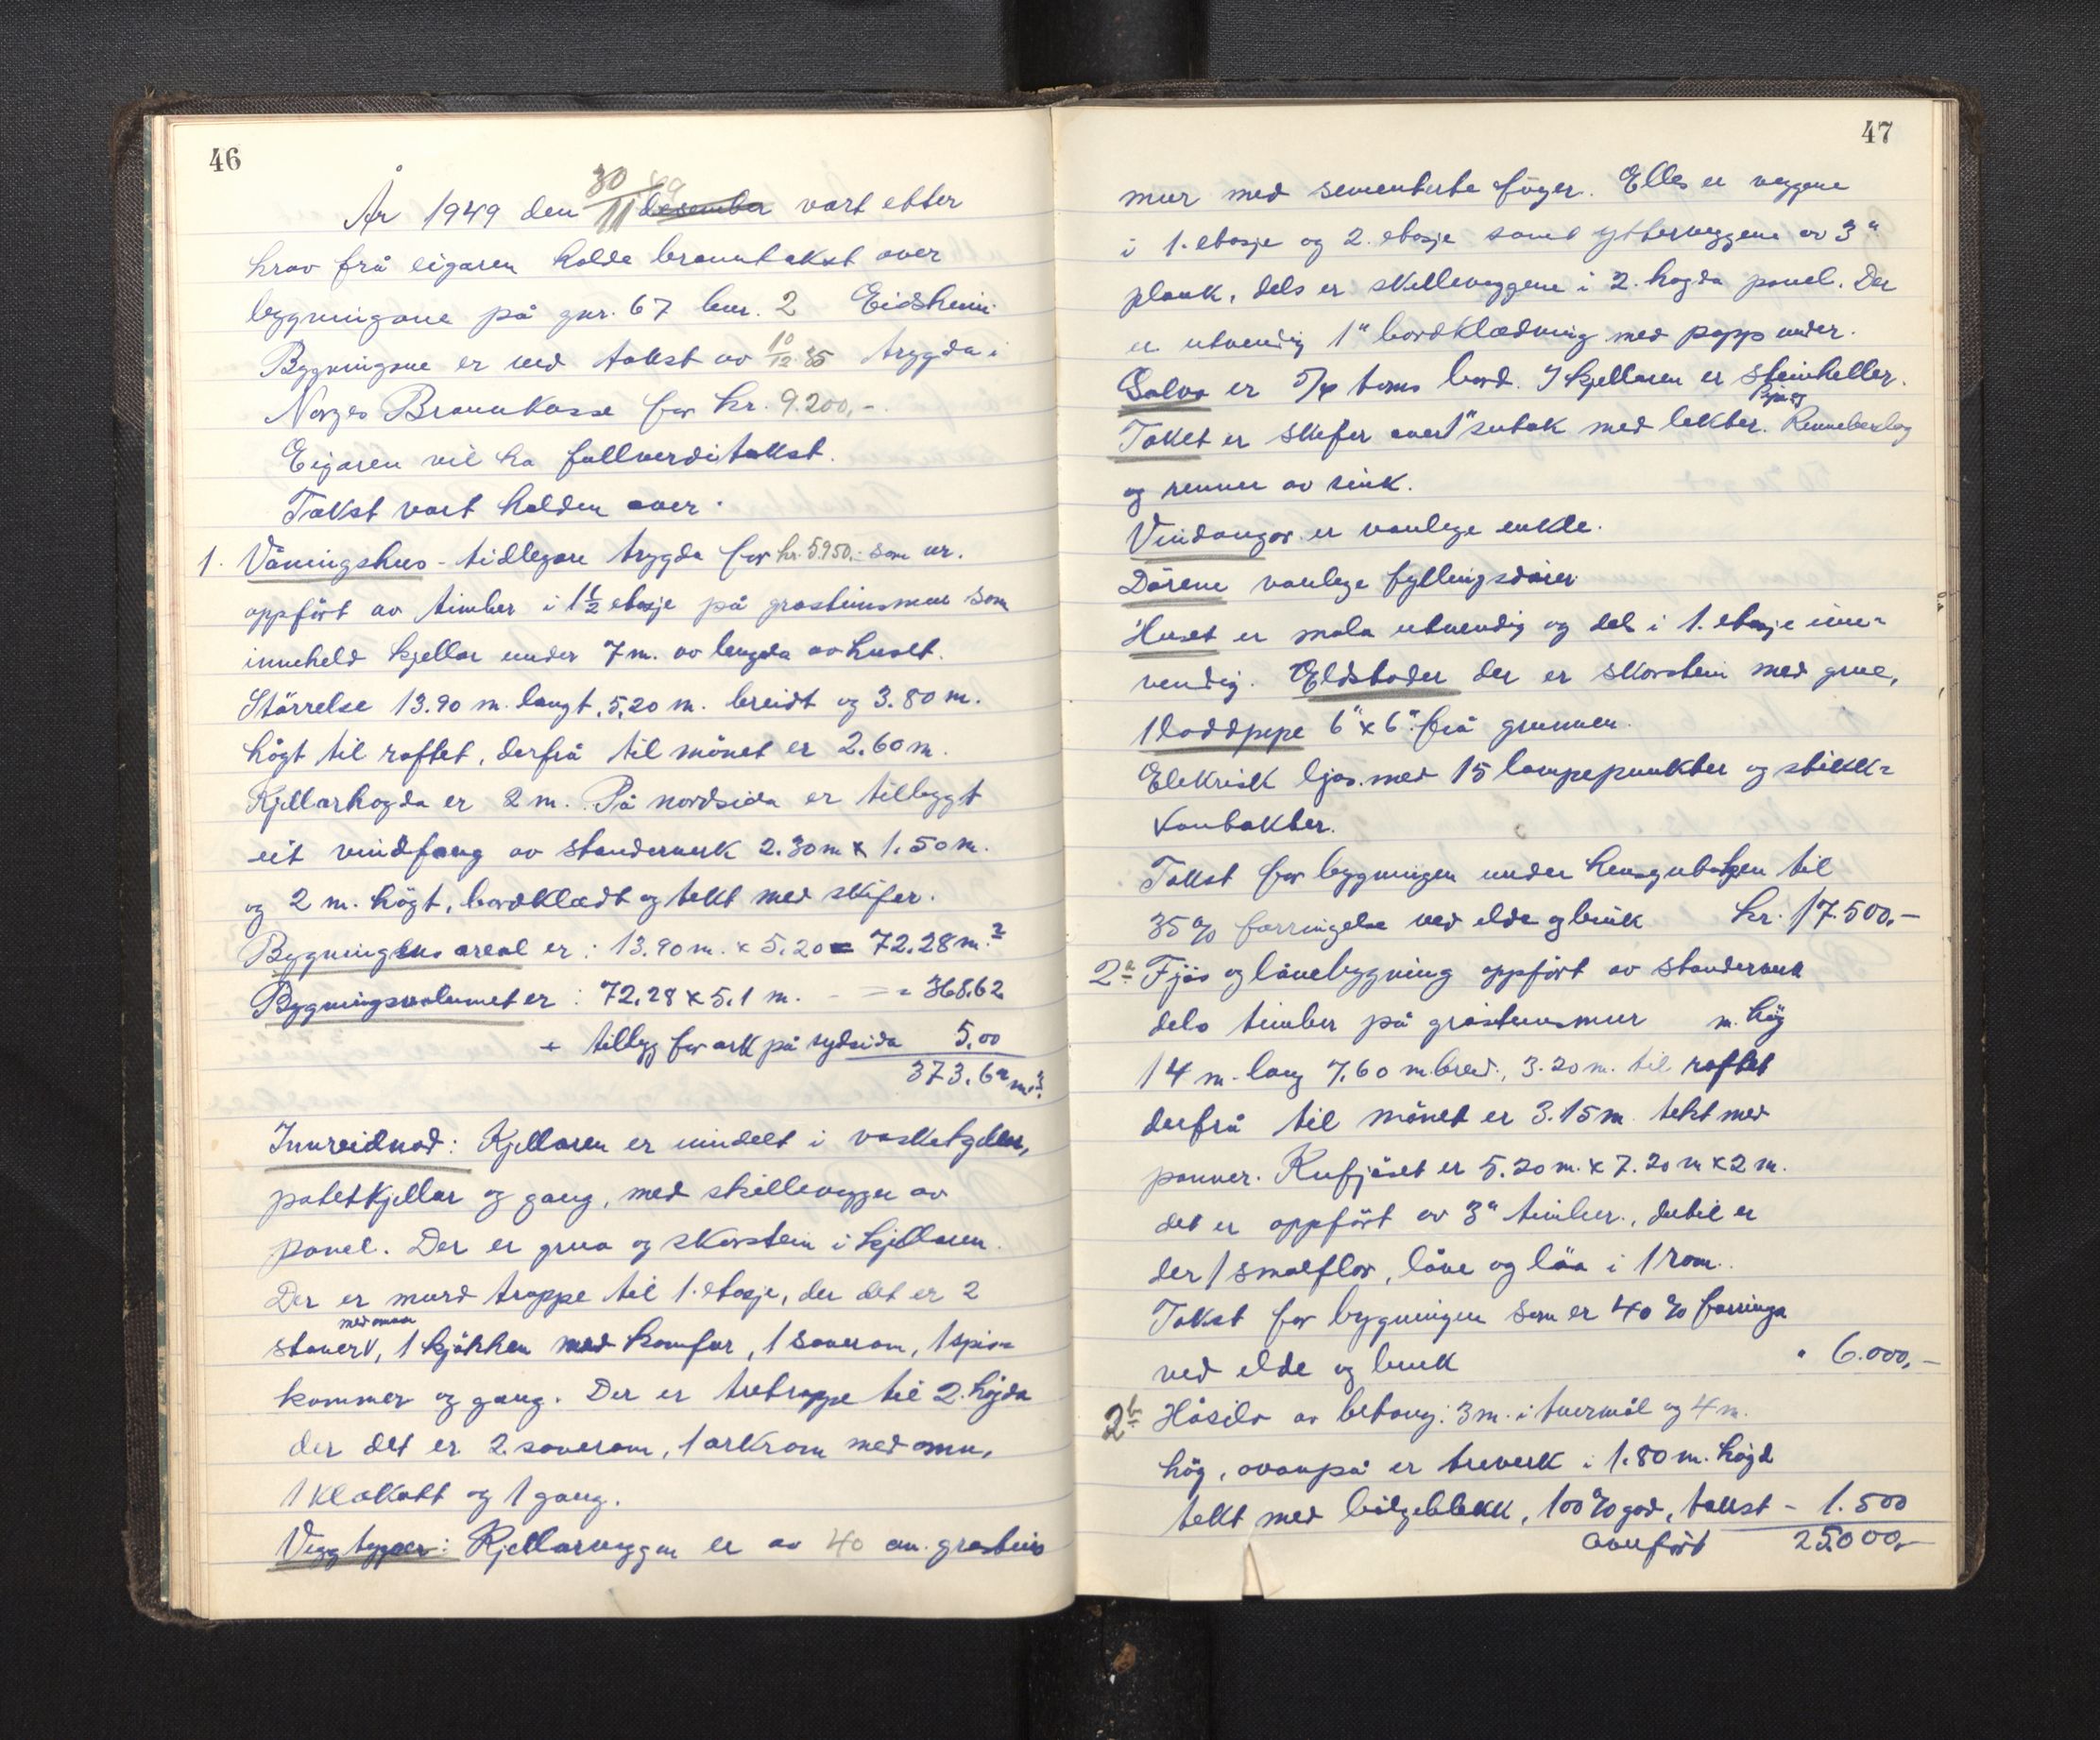 46
År 1949 den 30/11 desember vart etter
krav frå eigaren halde branntakst over
bygningane på gnr. 67 bnr. 2 Eidsheim.
Bygningane er ved takst av 10/12 35 trygda i
Norges Brannkasse for kr. 9.200,-.
Eigaren vil ha fullverditakst.
Takst vart halden over.
1. Våningshus - tidlegare trygda for kr. 5.950,- som er
oppfört av timber i 1 1/2 etasje på grasteinsmur som
inneheld kjellar under 7 m. av lengda av huset.
Störrelse 13.90 m. langt, 5,20 m. breidt og 3.80 m.
högt til raftet, derfrå til mönet er 2.60 m.
Kjellarhogda er 2 m. På nordsida er tilbygt
eit vindfang av standerverk 2.30 m x 1.50 m.
og 2 m. högt, bordklædt og tekt med skifer.
Bygningens areal er: 13.90 m. x 5.20 = 72.28 m.²
Bygningsvolumet er: 72.28 x 5.1 m. - = 368.62
+ tillegg for ark på sydsida 5,00
373.62 m.³
Innreidnad: Kjellaren er inndelt i vaskekjellar,
potetkjellar og gang, med skillevegger av
panel. Der er grua og skorstein i kjellaren.
Der er murd trappe til 1. etasje, der det er 2
med omnar
stover V, 1 kjökken med komfur, 1 soverom, 1 spis-
kammer og gang. Der er tretrappe til 2. högda
der det er 2 soverom, 1 arkrom med omn,
1 klækott og 1 gang.
Veggtyper: Kjellarveggen er av 40 cm. grastein
47
mur med sementerte föger. Elles er veggene
i 1. etasje og 2. etasje samt ytterveggene av 3"
plank, dels er skilleveggene i 2. hogda panel. Der
er utvendig 1" bordklædning med papp under.
Golva er 5/4 toms bord. I kjellaren er steinheller.
Papp og
Taket er skifer over 1" sutak med lekter. Rennebeslag
og renner av sink.
Vindaugor er vanlege enkle.
Dörene vanlege fyllingsdörer.
Huset er mala utvendig og dels i 1. etasje inn-
vendig. Eldstader der er skorstein med grue,
1 loddpipe 6" x 6" frå grunnen.
Elekrisk ljos med 15 lampepunkter og stikk-
kontakter.
Takst for bygningen under hensyntagen til
35 % forringelse ved elde og bruk kr. 17.500,-
2a Fjös og lånebygning oppfört av standerverk
dels timber på grasteinsmur m. hög
14 m. lang 7.60 m. breid., 3.20 m. til raftet
derfrå til mönet er 3.15 m. tekt med
panner. Kufjöset er 5.20 m. x 7.20 m x 2 m.
det er oppfört av 3" timber., dertil er
der 1 smalflor, låve og löa i 1 rom.
Takst for bygningen som er 40 % forringa
ved elde og bruk " 6.000,-
2b Hösilo av betong: 3 m. i tvermål og 4 m.
hög, ovanpå er treverk i 1.80 m. högd
tekt med bölgeblekk, 100 % god, takst - 1.500
overfört 25.000,-